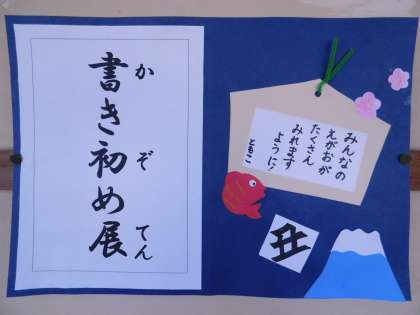 書き初め展
か ぞ てん
みんなの
えがおが
たくさん
みれます
ように!
ともこ
丑